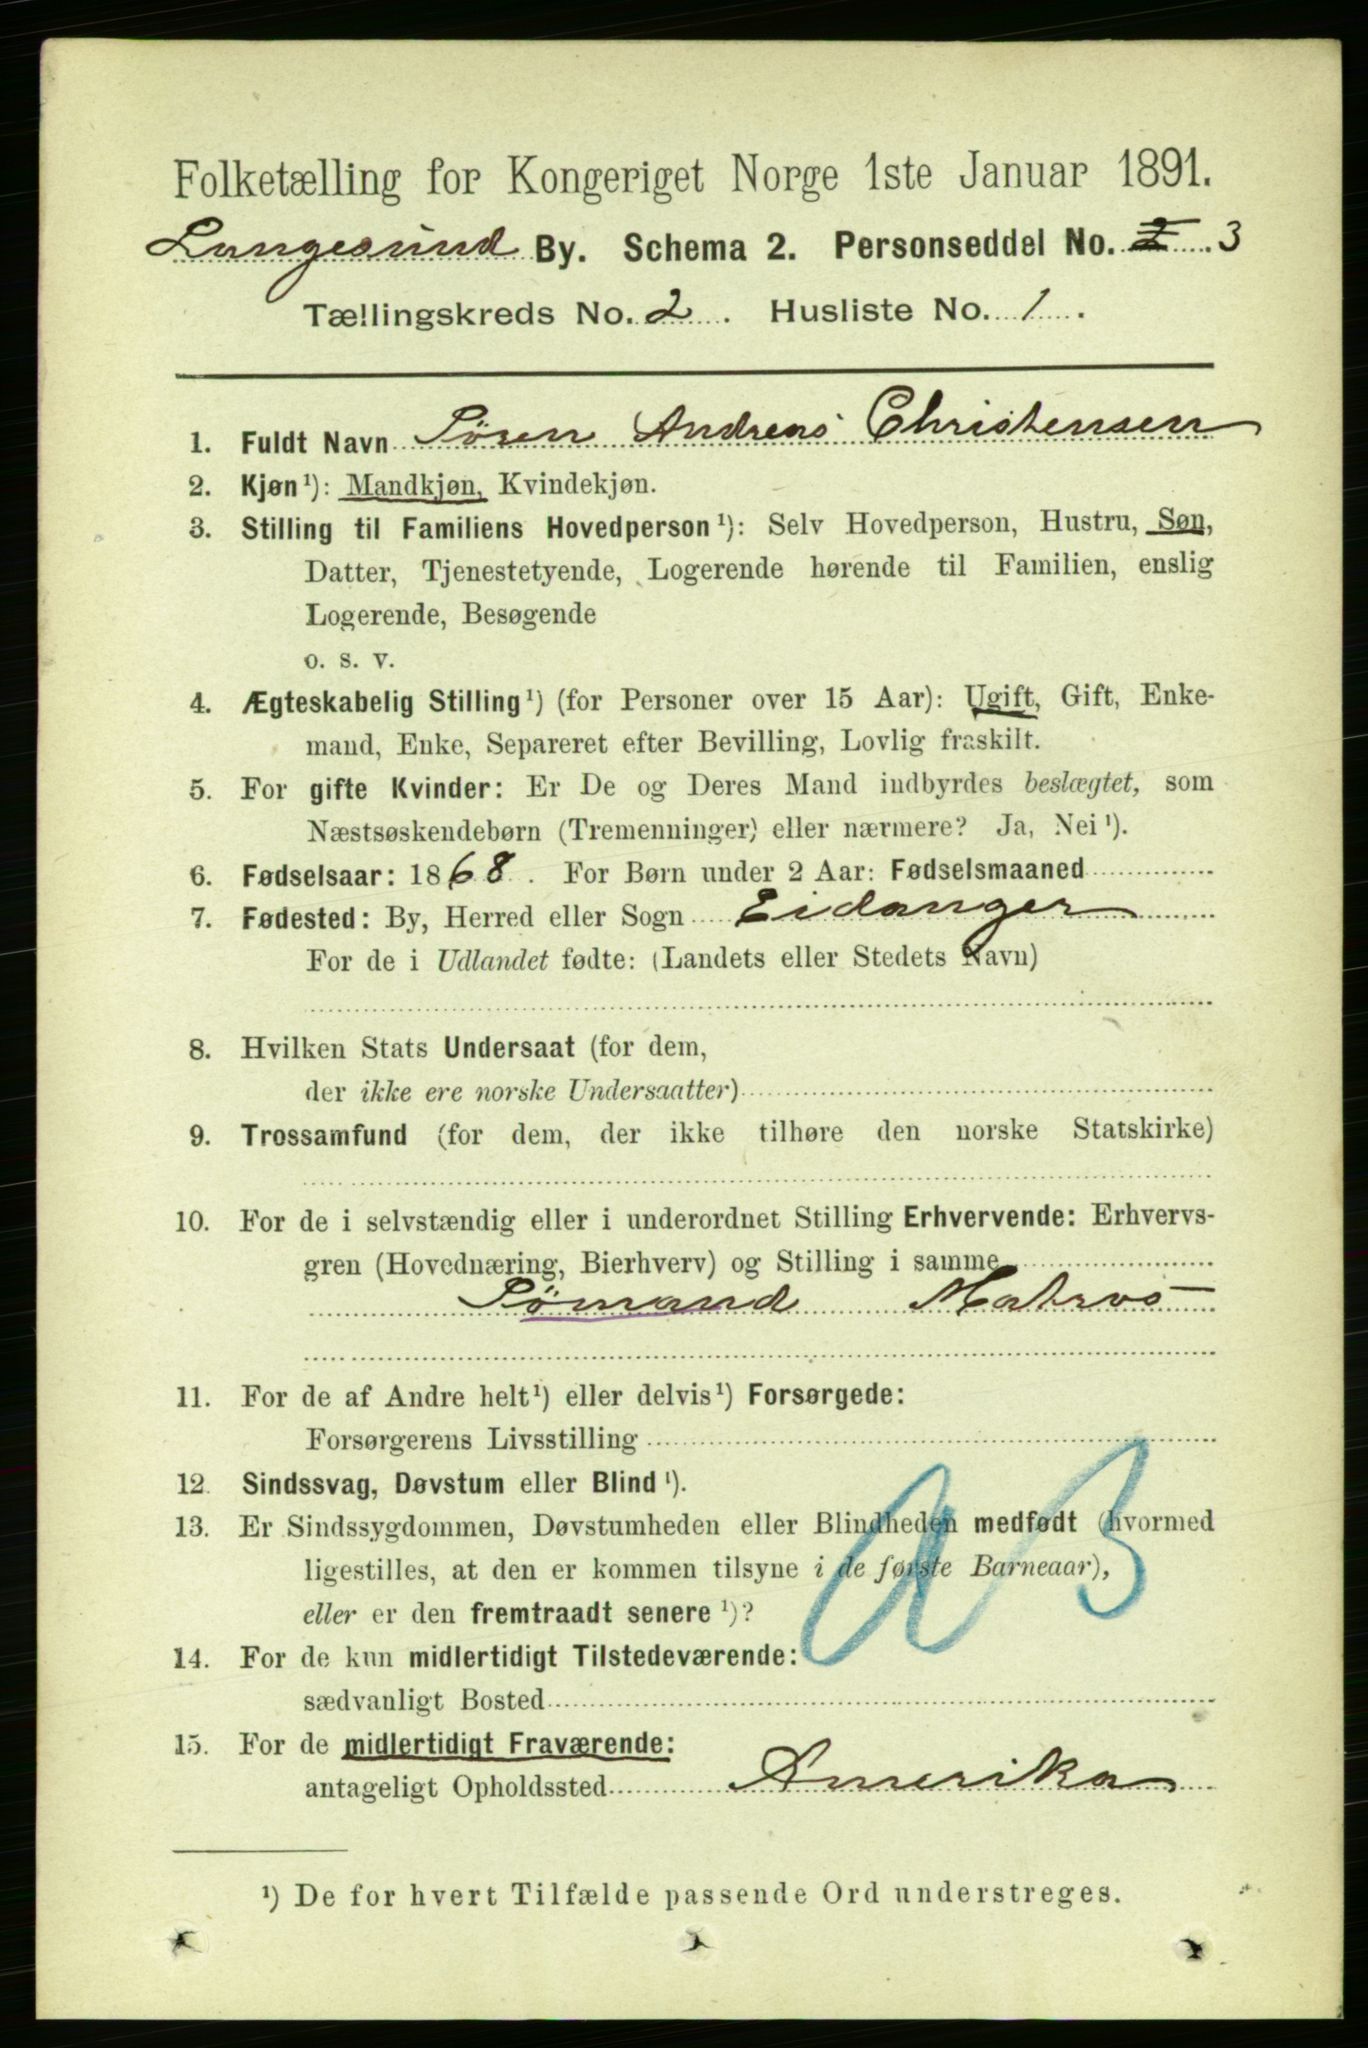 Folketælling for Kongeriget Norge 1ste Januar 1891.
Langesund By. Schema 2. Personseddel No. 2 3
Tællingskreds No. 2. Husliste No. 1.
1. Fuldt Navn Søren Andreas Christensen
2. Kjøn ¹): Mandkjøn, Kvindekjøn.
3. Stilling til Familiens Hovedperson ¹): Selv Hovedperson, Hustru, Søn,
Datter, Tjenestetyende, Logerende hørende til Familien, enslig
Logerende, Besøgende
o. s. v.
4. Ægteskabelig Stilling ¹) (for Personer over 15 Aar): Ugift, Gift, Enke-
mand, Enke, Separeret efter Bevilling, Lovlig fraskilt.
5. For gifte Kvinder: Er De og Deres Mand indbyrdes beslægtet, som
Næstsøskendebørn (Tremenninger) eller nærmere? Ja, Nei ¹).
6. Fødselsaar: 1868. For Børn under 2 Aar: Fødselsmaaned
7. Fødested: By, Herred eller Sogn Eidanger
For de i Udlandet fødte: (Landets eller Stedets Navn)
8. Hvilken Stats Undersaat (for dem,
der ikke ere norske Undersaatter)
9. Trossamfund (for dem, der ikke tilhøre den norske Statskirke)
10. For de i selvstændig eller i underordnet Stilling Erhvervende: Erhvervs-
gren (Hovednæring, Bierhverv) og Stilling i samme
Sømand Matros
11. For de af Andre helt ¹) eller delvis ¹) Forsørgede:
Forsørgerens Livsstilling
12. Sindssvag, Døvstum eller Blind ¹).
13. Er Sindssygdommen, Døvstumheden eller Blindheden medfødt (hvormed
ligestilles, at den er kommen tilsyne i de første Barneaar),
eller er den fremtraadt senere ¹)?
14. For de kun midlertidigt Tilstedeværende:
sædvanligt Bosted
15. For de midlertidigt Fraværende:
antageligt Opholdssted Amerika
¹) De for hvert Tilfælde passende Ord understreges.